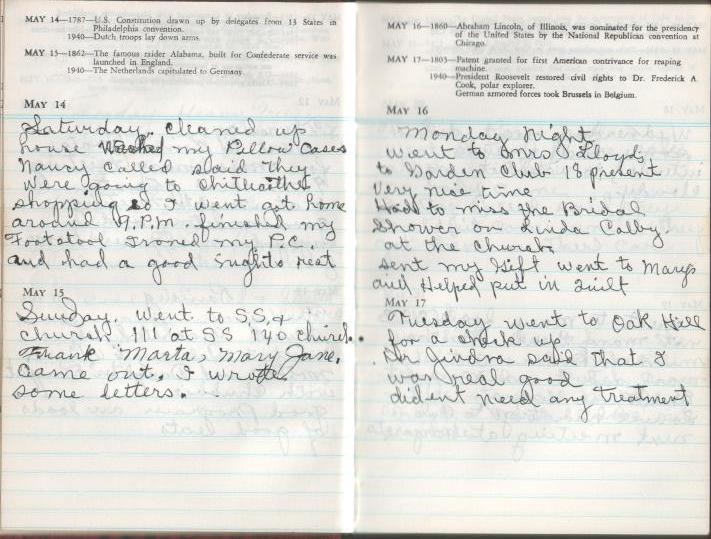 MAY 14—1787—U.S. Constitution drawn up by delegates from 13 States in
Philadelphia convention.
1940—Dutch troops lay down arms.
MAY 15—1862—The famous raider Alabama, built for Confederate service was
launched in England.
1940—The Netherlands capitulated to Germany.
MAY 14
Saturday. cleaned up
house Washed my Pillow Cases
Nancy called said They
were going to
shopping so I went got home
around 9.P.M. finished my
Footstool Ironed my P.C.
and had a good nights rest
MAY 15
Sunday. Went to S.S. &
church 111 at SS 140 church.
Frank Marta, Mary Jane.
came out. I wrote
some letters.
MAY 16—1860—Abraham Lincoln, of Illinois, was nominated for the presidency
of the United States by the National Republican convention at
Chicago.
MAY 17—1803—Patent granted for first American contrivance for reaping
machine.
1940—President Roosevelt restored civil rights to Dr. Frederick A.
Cook, polar explorer.
German armored forces took Brussels in Belgium.
MAY 16
Monday Night
went to Mrs Lloyds
to Garden Club 18 present
Very nice time
Had to miss the Bridal
Shower on Linda Colby.
at the Church.
sent my Gift went to Marys
and Helped put in Quilt
MAY 17
Tuesday went to Oak Hill
for a check up
Dr Jindra said that I
was real good
did'ent need any treatment